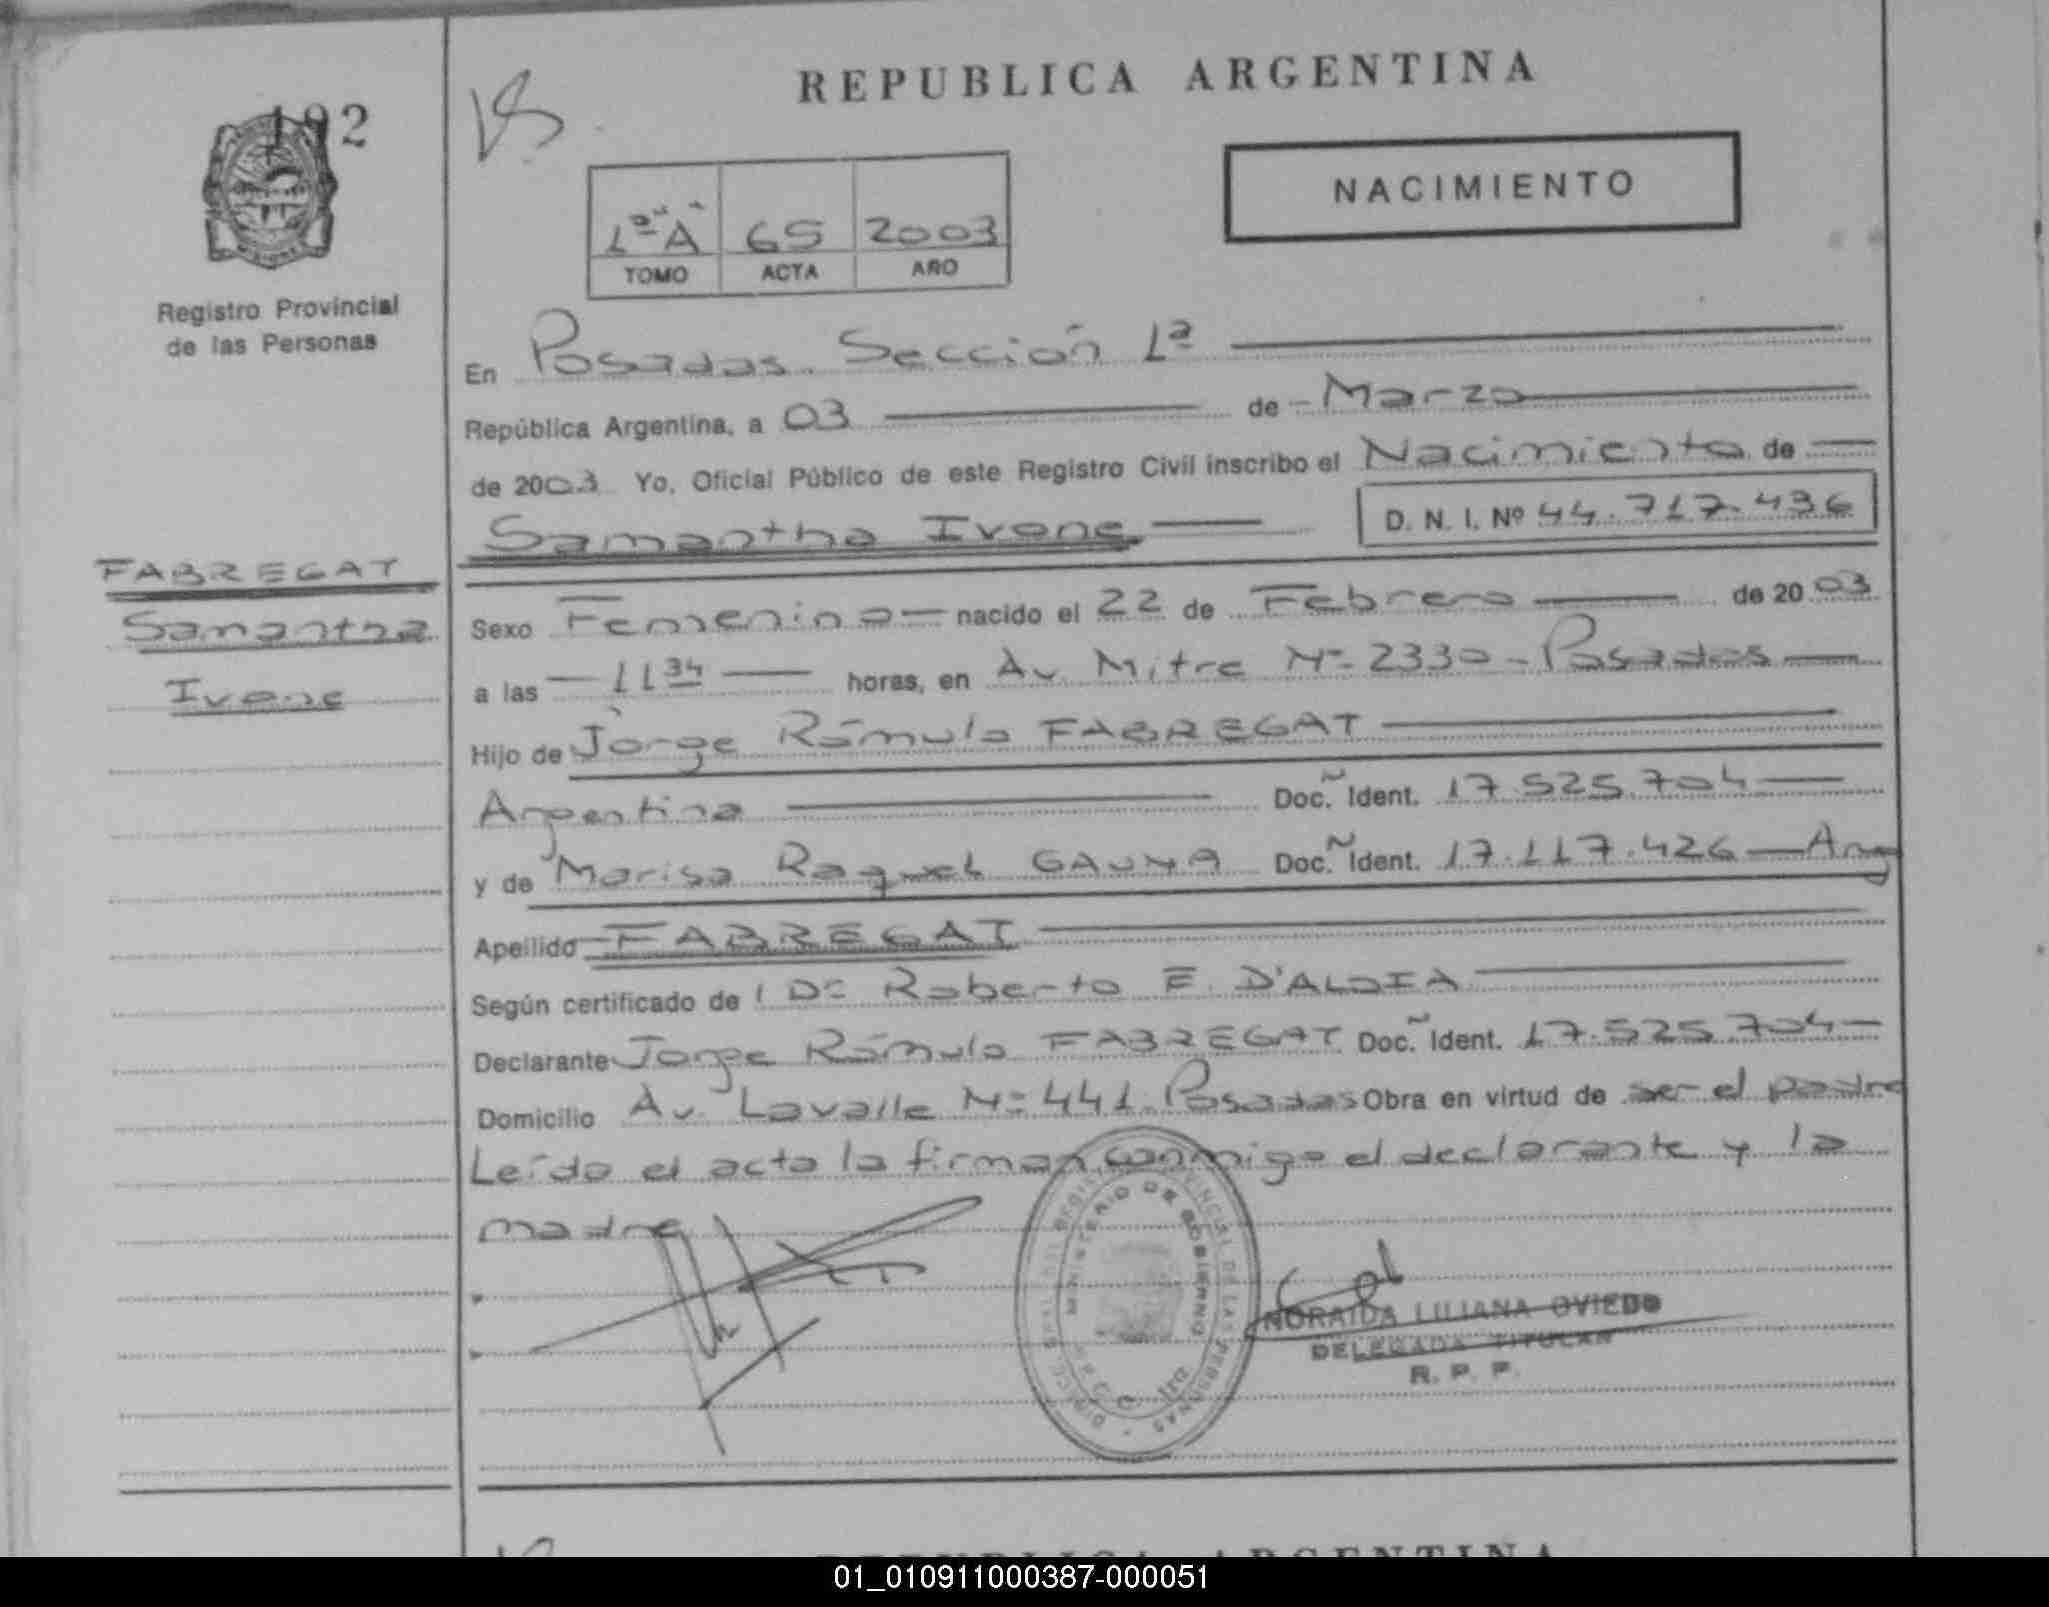 192
REPUBLICA ARGENTINA
NACIMIENTO
1ª "A" 65 2003
TOMO ACTA AÑO
Registro Provincial
de las Personas
En Posadas. Sección 1ª
República Argentina, a 03 de Marzo
de 2003 Yo, Oficial Público de este Registro Civil inscribo el Nacimiento de
Samantha Ivone D. N. I. Nº 44.717.436
FABREGAT
Samantha
Ivone
Sexo Femenino nacido el 22 de Febrero de 2003
a las 11 34 horas, en Av. Mitre Nº 2330 - Posadas
Hijo de Jorge Rómulo FABREGAT
Argentina Doc. Ident. 17.525.704
y de Marisa Raquel GAUNA Doc. Ident. 17.117.426 — Arg
Apellido FABREGAT
Según certificado de Roberto E. D'ALOIA
Declarante Jorge Rómulo FABREGAT Doc. Ident. 17.525.704
Domicilio Av. Lavalle Nº 441 Posadas Obra en virtud de ser el padre
Leída el acta la firman conmigo el declarante y la
madre
MINISTERIO DE GOBIERNO
NORAIDA LILIANA OVIEDO
DELEGADA TITULAR
R. P. P.
REPUBLICA ARGENTINA
01_010911000387-000051